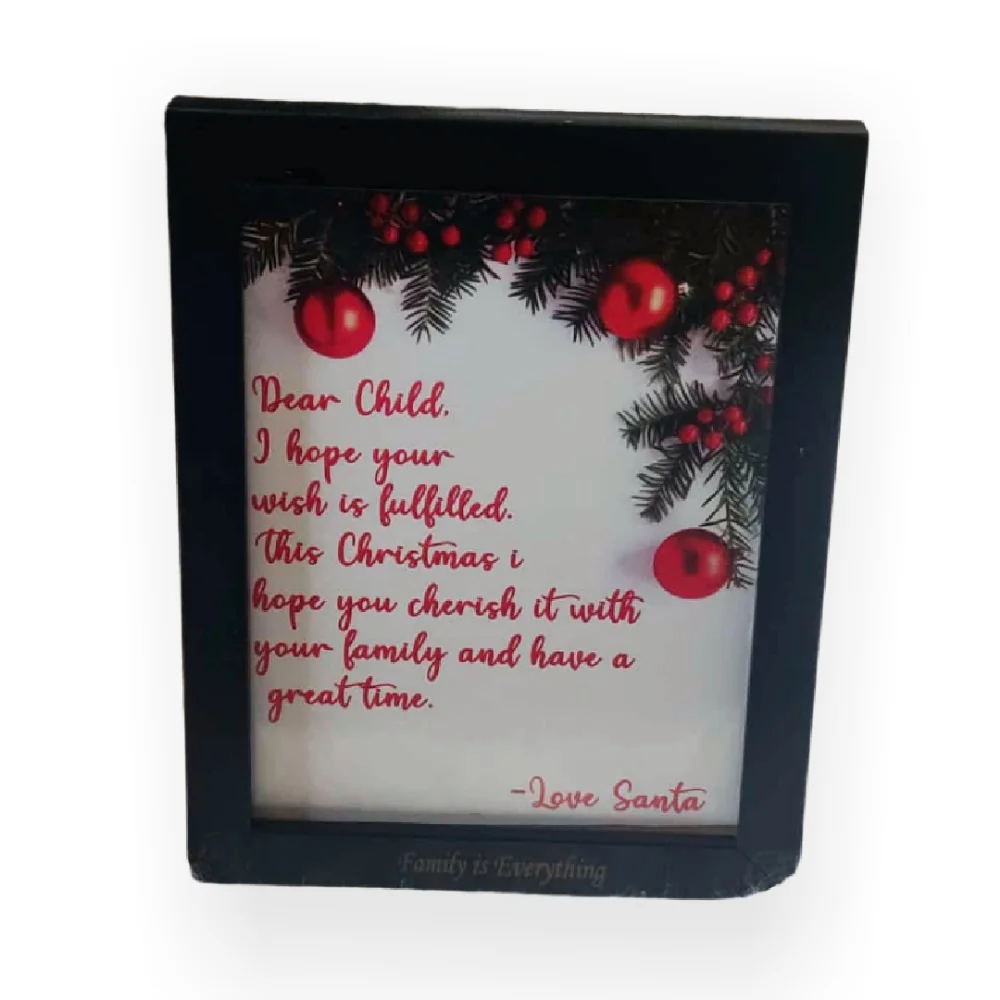 Dear Child.
I hope your
wish is fulfilled.
This Christmas i
hope you cherish it with
your family and have a
great time.
-Love Santa
Family is Everything